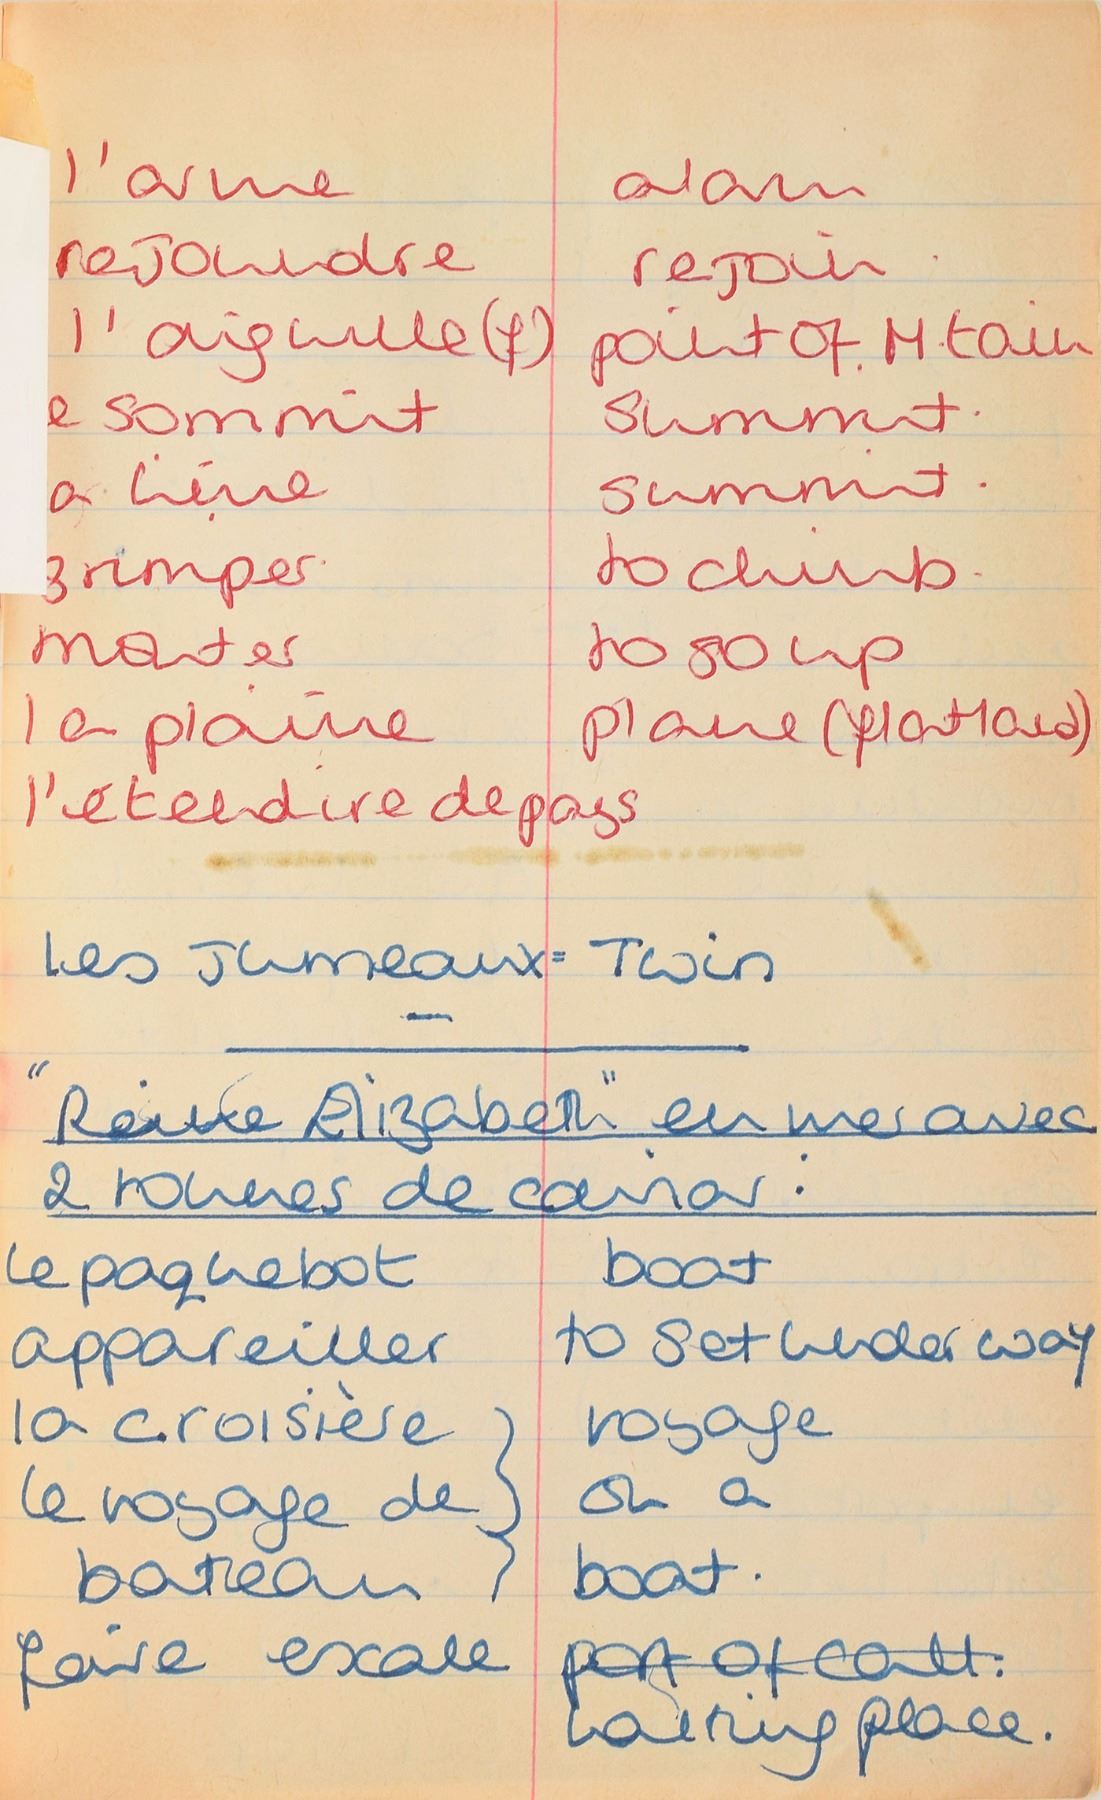 l'arme alarm
rejoindre rejoin.
l'aiguille (f) point of M.tain
e sommit summit.
a lième summit.
grimper to climb.
monter to go up
la plaine plane (flatland)
l'étendire de pays
Les Jumeaux = Twin
"Reine Elizabeth" en mer avec
2 tonnes de caviar:
le paquebot boat
appareiller to set under way
la croisière } voyage
le voyage de } on a
bateau } boat.
faire escale port of call.
halting place.